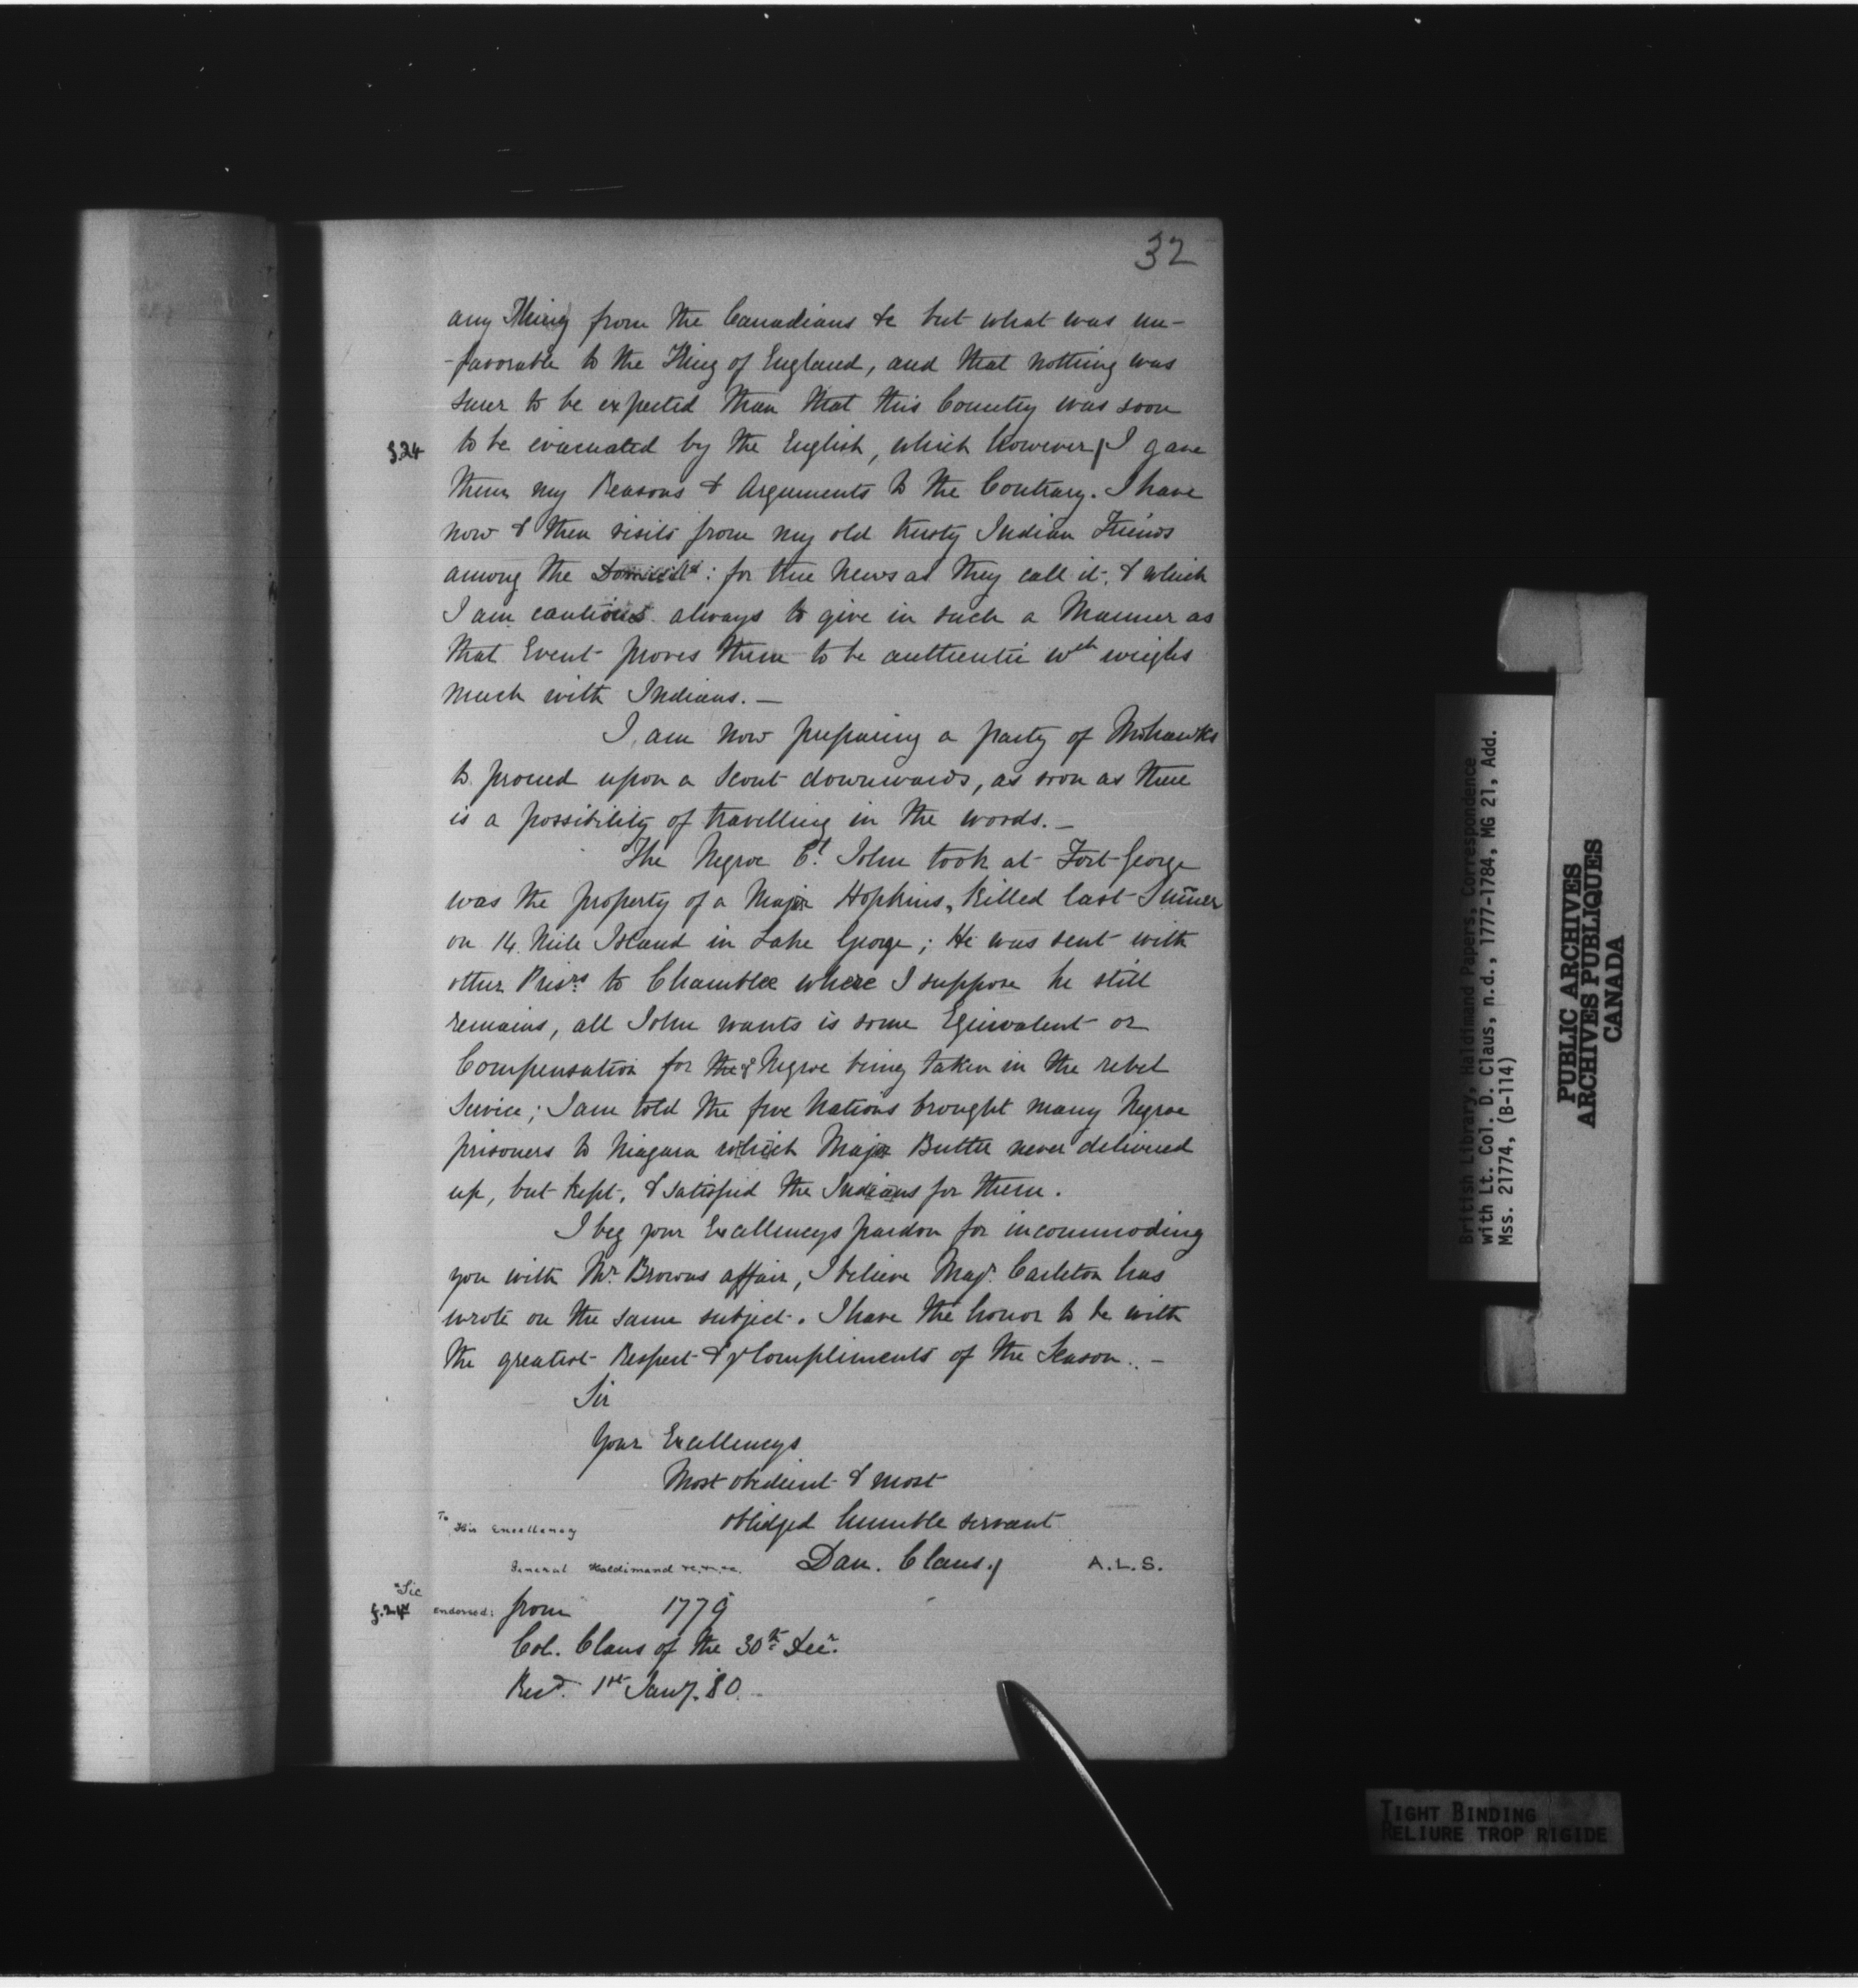 32
any Thing from the Canadians &c but what was un-
-favorable to the King of England, and that nothing was
surer to be expected than that this Country was soon
f.24 to be evacuated by the English, which however / I gave
them my Reasons & Arguments to the Contrary. I have
now & then visits from my old trusty Indian Friends
among the Domicild: for true News as they call it, & which
I am cautious always to give in such a Manner as
that Event proves them to be authentic wch weighs
much with Indians. —
I am now preparing a party of Mohawks
to proceed upon a Scout downwards, as soon as there
is a possibility of travelling in the woods. —
The Negroe Ct. John took at Fort George
was the property of a Major Hopkins, killed last Summer
on 14 Mile Island in Lake George; He was sent with
other Prisrs to Chamblee where I suppose he still
remains, all John wants is some Equivalent or
Compensation for the Negroe being taken in the rebel
Service; I am told the five Nations brought many Negroe
prisoners to Niagara which Major Butler never delivered
up, but kept, & satisfied the Indians for them.
I beg your Excellencys pardon for incommoding
you with Mr. Browns affair, I believe Majr. Carleton has
wrote on the same subject. I have the honor to be with
the greatest Respect & ye Compliments of the Season. —
Sir
Your Excellencys
Most obedient & most
oblidged humble servant
To His Excellency
General Haldimand &c. &c. &c. Dan. Claus./ A.L.S.
*Sic
f.24v endorsed: from 1779
Col. Claus of the 30th Decr.
Recd. 1st Jany. 80.
British Library, Haldimand Papers, Correspondence
with Lt. Col. D. Claus, n.d., 1777-1784, MG 21, Add.
Mss. 21774, (B-114)
PUBLIC ARCHIVES
ARCHIVES PUBLIQUES
CANADA
TIGHT BINDING
RELIURE TROP RIGIDE